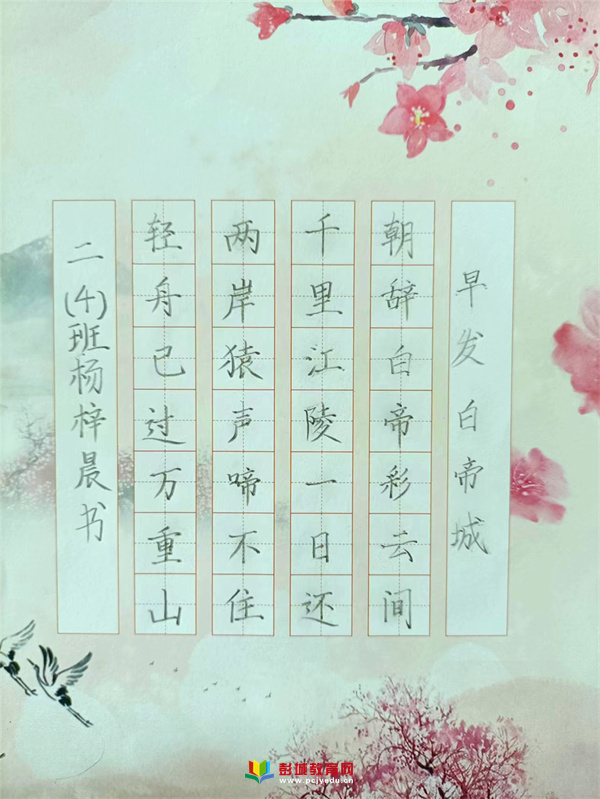 早发白帝城
朝辞白帝彩云间
千里江陵一日还
两岸猿声啼不住
轻舟已过万重山
二(4)班杨梓晨书
彭城教育网
www.pcjyedu.cn